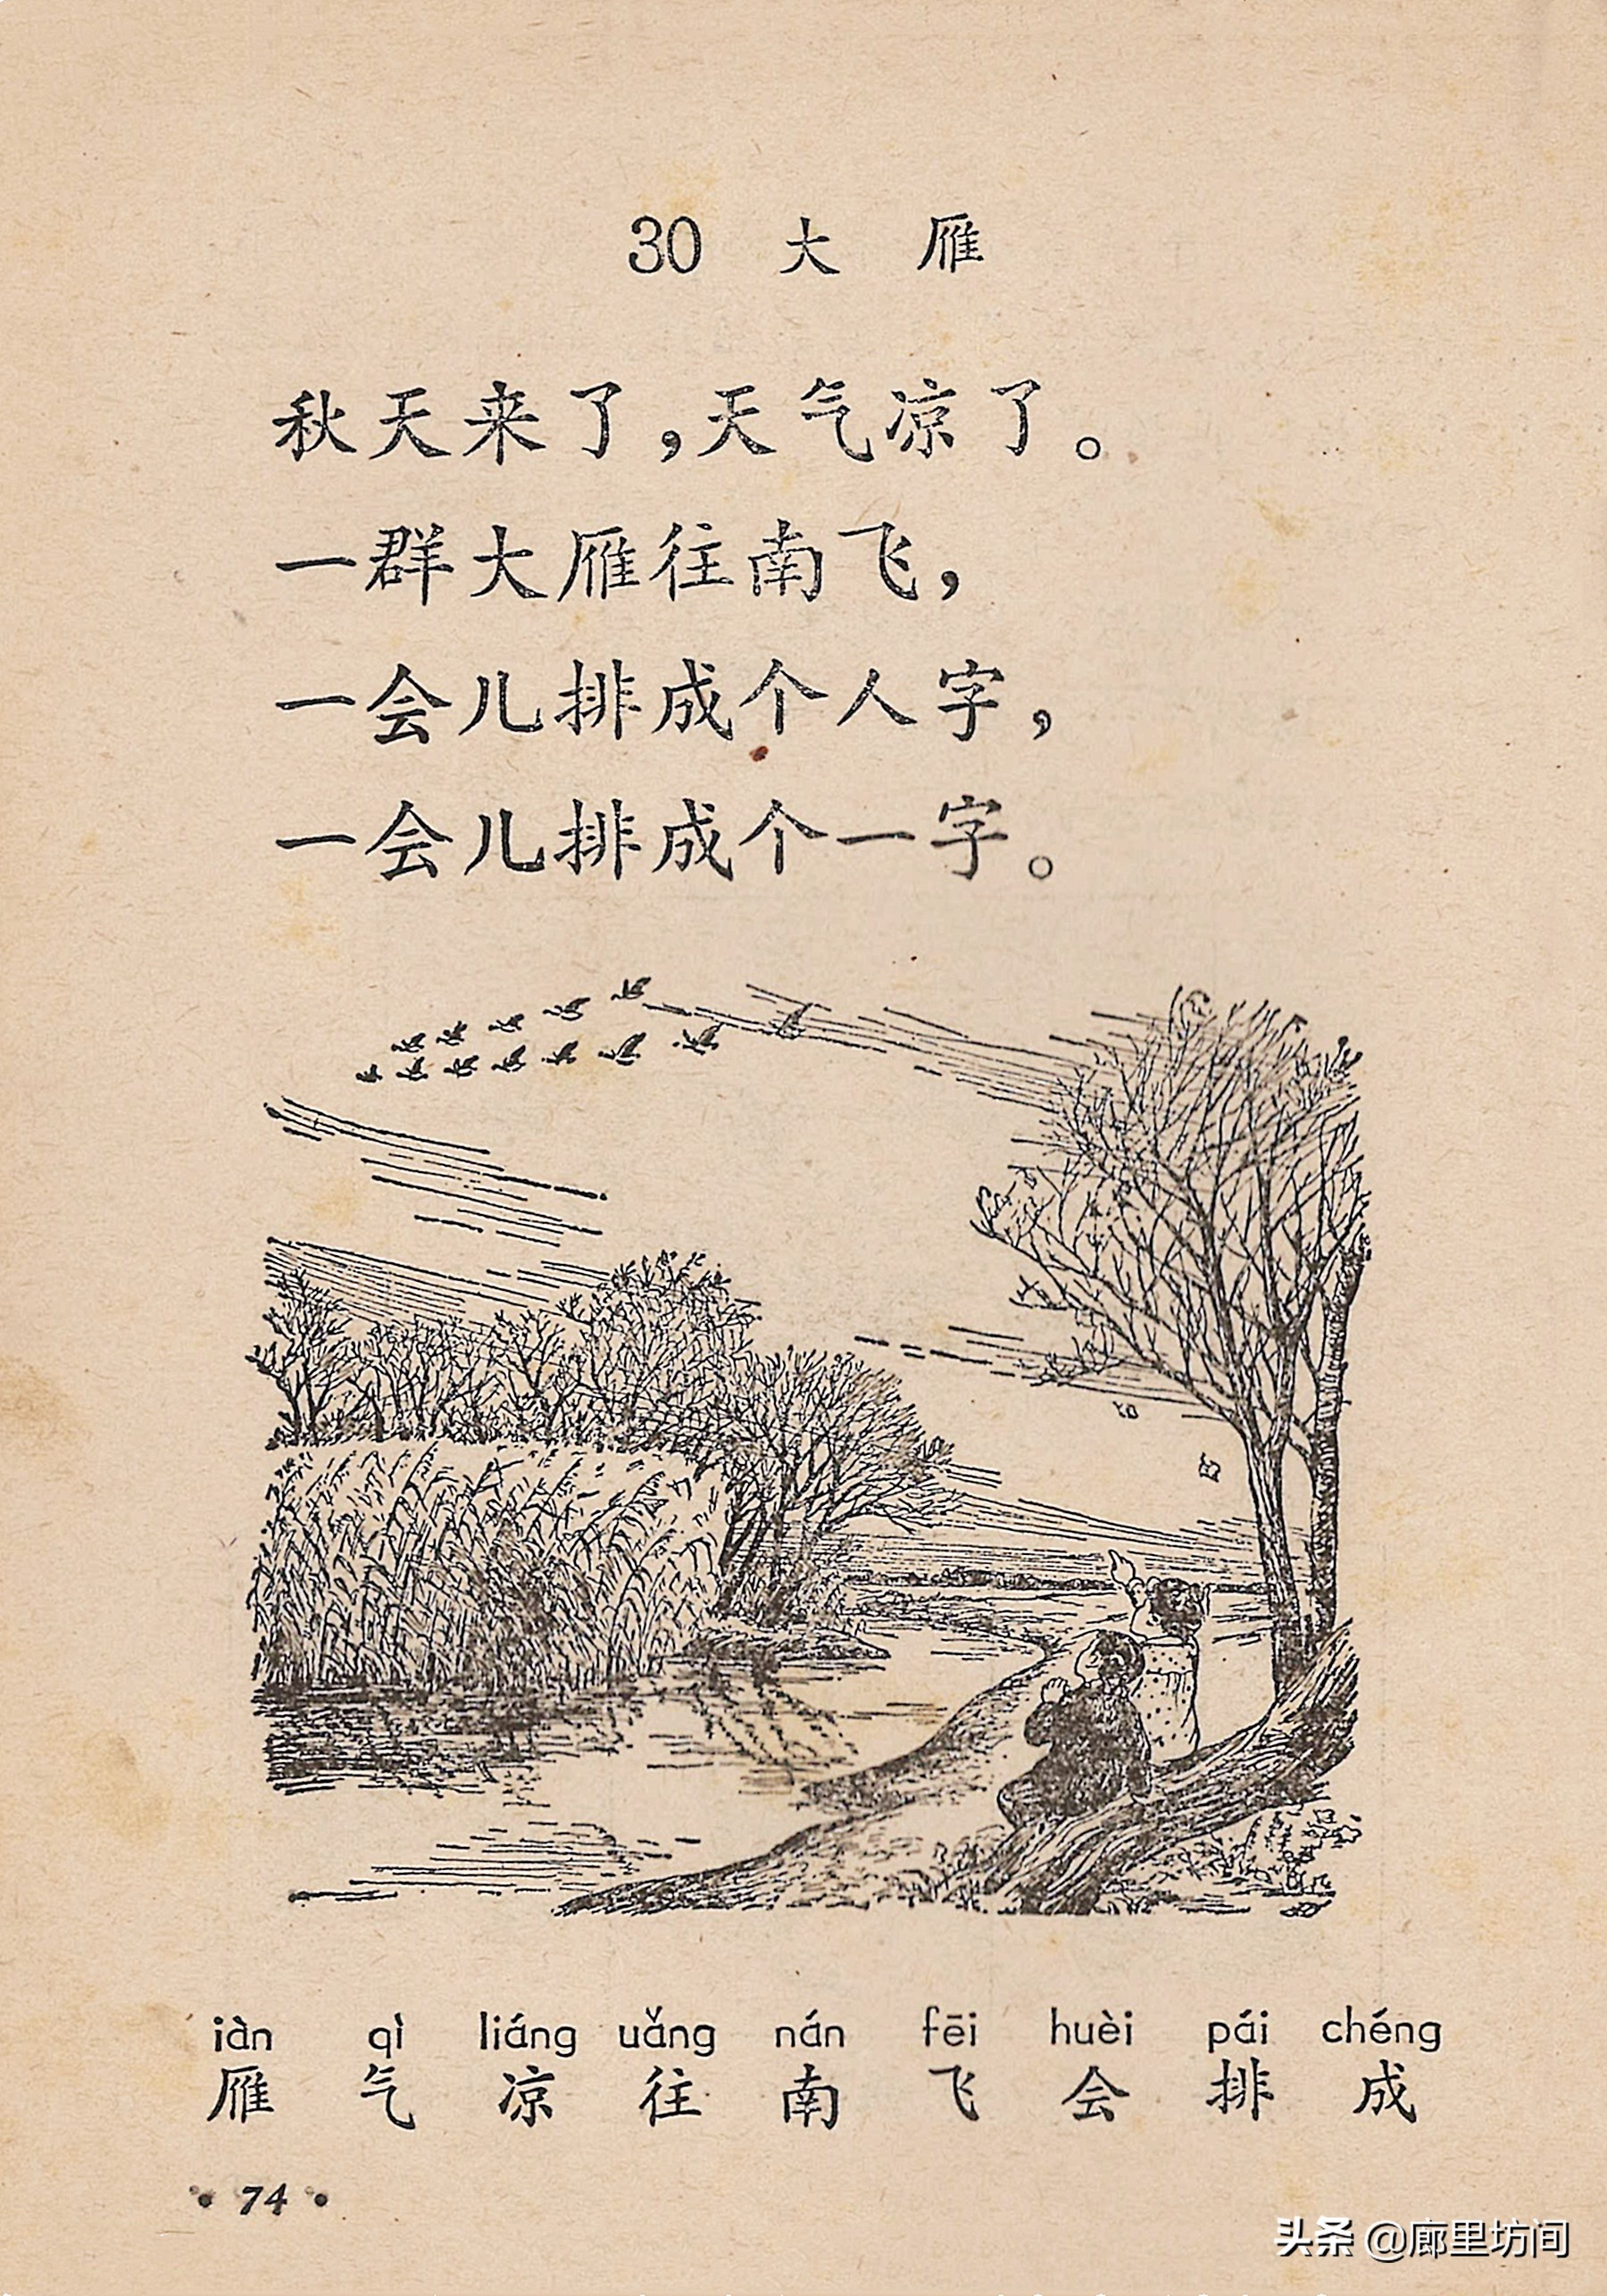 30 大 雁
秋天来了,天气凉了。
一群大雁往南飞,
一会儿排成个人字,
一会儿排成个一字。
iàn qì liáng uǎng nán fēi huèi pái chéng
雁 气 凉 往 南 飞 会 排 成
• 74 •
头条 @廊里坊间